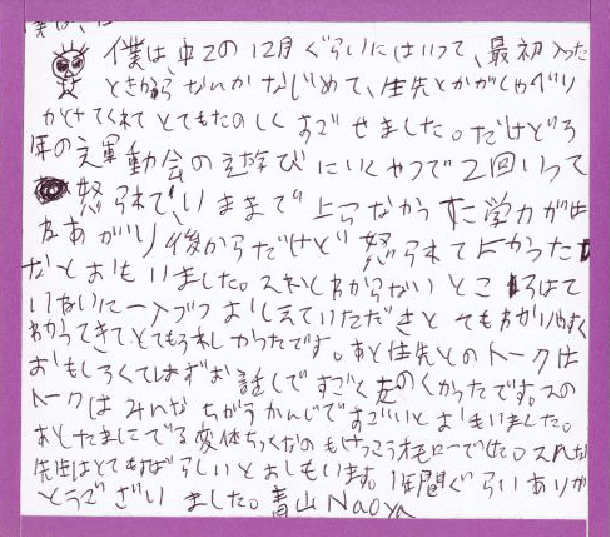 僕は、中2の12月ぐらいにはいって、最初入った
ときからなんかなじめて、生先とかがしゃべり
かけてくれてとてもたのしくすごせました。だけど3
年の文運動会の立遊びにいくやつで2回いって
怒られて、いままで上らなかった学力がば
なあがり後からだけど怒られてよかった
なとおもいました。それにわからないところはて
いねいに一つづつおしえていただきとてもわかりやすく
わかってきてとてもうれしかったです。あと住先とのトークは
おもしろくてはずお話しですごくたのくかったです。スの
トークはみんなちがうかんじですごいとおもいました。
あとたまにでる変体ちっくなのもけっこうオモローでした。スんな
先生はとてもすばらしいとおもいます。1年間ぐらいありが
とうございました。青山Naoya